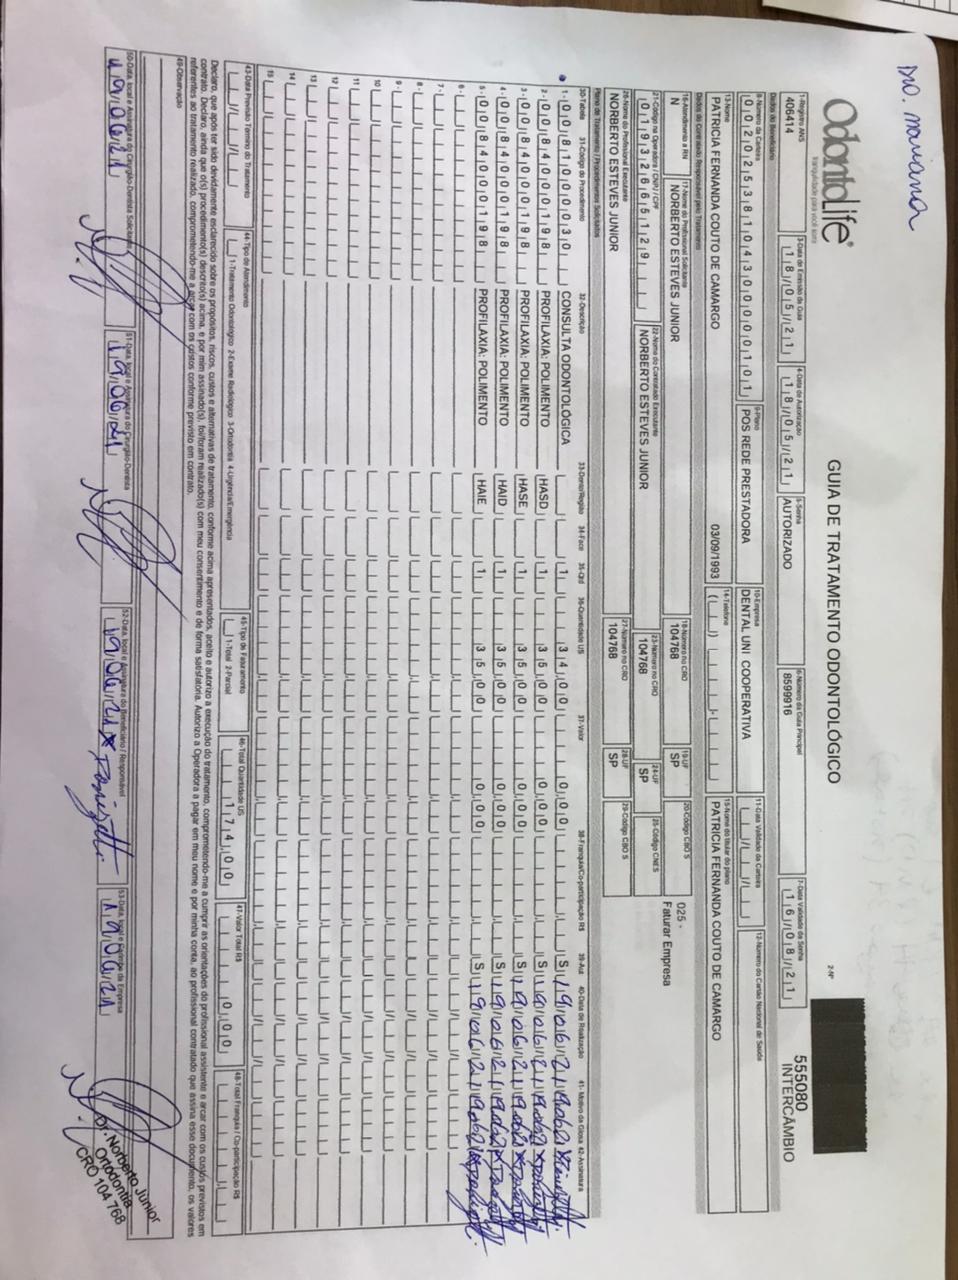 Dra. mariana
OdontoLife®
tranquilidade para você sorrir
GUIA DE TRATAMENTO ODONTOLÓGICO
2-Nº
555080
INTERCÂMBIO
1-Registro ANS
406414
3-Data de Emissão da Guia
18/05/21
4-Data de Autorização
18/05/21
5-Senha
AUTORIZADO
6-Número da Guia Principal
8599916
7-Data Validade da Senha
16/08/21
Dados do Beneficiário
8-Número da Carteira
00202538104300000101
9-Plano
POS REDE PRESTADORA
10-Empresa
DENTAL UNI COOPERATIVA
11-Data Validade da Carteira
12-Número do Cartão Nacional de Saúde
13-Nome
PATRICIA FERNANDA COUTO DE CAMARGO
03/09/1993
14-Telefone
15-Nome do titular do plano
PATRICIA FERNANDA COUTO DE CAMARGO
Dados do Contratado Responsável pelo Tratamento
16-Atendimento a RN
N
17-Nome do Profissional Solicitante
NORBERTO ESTEVES JUNIOR
18-Número no CRO
104768
19-UF
SP
20-Código CBO S
025 -
Faturar Empresa
21-Código na Operadora / CNPJ / CPF
01932665129
22-Nome do Contratado Executante
NORBERTO ESTEVES JUNIOR
23-Número no CRO
104768
24-UF
SP
25-Código CNES
26-Nome do Profissional Executante
NORBERTO ESTEVES JUNIOR
27-Número no CRO
104768
28-UF
SP
29-Código CBO S
Plano de Tratamento / Procedimentos Solicitados
30-Tabela 31-Código do Procedimento 32-Descrição 33-Dente/Região 34-Face 35-Qtd 36-Quantidade US 37-Valor 38-Franquia/Co-participação R$ 39-Aut 40-Data de Realização 41- Motivo da Glosa 42-Assinatura
1- 00 81000030 CONSULTA ODONTOLÓGICA 1 34,00 0,00 S 19/06/21
2- 00 84000198 PROFILAXIA: POLIMENTO HASD 1 35,00 0,00 S 19/06/21
3- 00 84000198 PROFILAXIA: POLIMENTO HASE 1 35,00 0,00 S 19/06/21
4- 00 84000198 PROFILAXIA: POLIMENTO HAID 1 35,00 0,00 S 19/06/21
5- 00 84000198 PROFILAXIA: POLIMENTO HAIE 1 35,00 0,00 S 19/06/21
6-
7-
8-
9-
10
11
12
13
14
15
43-Data Previsão Término do Tratamento
44-Tipo de Atendimento
1-Tratamento Odontológico 2-Exame Radiológico 3-Ortodontia 4-Urgência/Emergência
45-Tipo de Faturamento
1-Total 2-Parcial
46-Total Quantidade US
174,00
47-Valor Total R$
0,00
48-Total Franquia / Co-participação R$
Declaro, que após ter sido devidamente esclarecido sobre os propósitos, riscos, custos e alternativas de tratamento, conforme acima apresentados, aceito e autorizo a execução do tratamento, comprometendo-me a cumprir as orientações do profissional assistente e arcar com os custos previstos em
contrato. Declaro, ainda que o(s) procedimento(s) descrito(s) acima, e por mim assinado(s), foi/foram realizado(s) com meu consentimento e de forma satisfatória. Autorizo a Operadora a pagar em meu nome e por minha conta, ao profissional contratado que assina esse documento, os valores
referentes ao tratamento realizado, comprometendo-me a arcar com os custos conforme previsto em contrato.
49-Observação
50-Data, local e Assinatura do Cirurgião-Dentista Solicitante
19/06/21
51-Data, local e Assinatura do Cirurgião-Dentista
19/06/21
52-Data, local e Assinatura do Beneficiário / Responsável
19/06/21
53-Data, local e Carimbo da Empresa
19/06/21
Dr. Norberto Júnior
Ortodontia
CRO 104 768